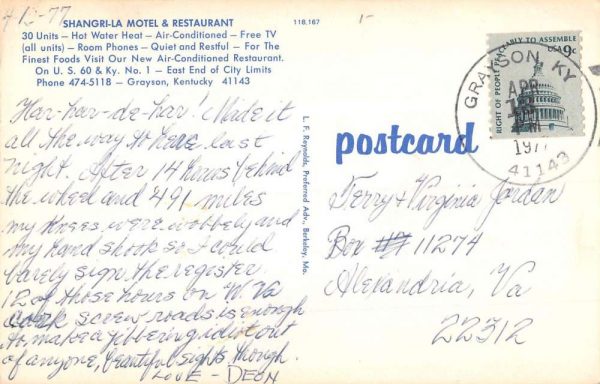 4-13-77
SHANGRI-LA MOTEL & RESTAURANT
30 Units — Hot Water Heat — Air-Conditioned — Free TV
(all units) — Room Phones — Quiet and Restful — For The
Finest Foods Visit Our New Air-Conditioned Restaurant.
On U. S. 60 & Ky. No. 1 — East End of City Limits
Phone 474-5118 — Grayson, Kentucky 41143
118,167
Har-har-de-har! Made it
all the way to here last
night. After 14 hours behind
the wheel and 491 miles
my knees were wobbely and
my hand shook so I could
barely sign the regester.
12 of those hours on "W. Va
cork screw roads is enough
to make a gibbering idiot out
of anyone, beautiful sights though.
LOVE - DEON
L. F. Reynolds, Preferred Adv., Berkeley, Mo.
postcard
RIGHT OF PEOPLE PEACEABLY TO ASSEMBLE
USA 9c
GRAYSON, KY
APR
13
PM
1977
41143
Terry & Virginia Jordan
Box 11274
Alexandria, Va
22312